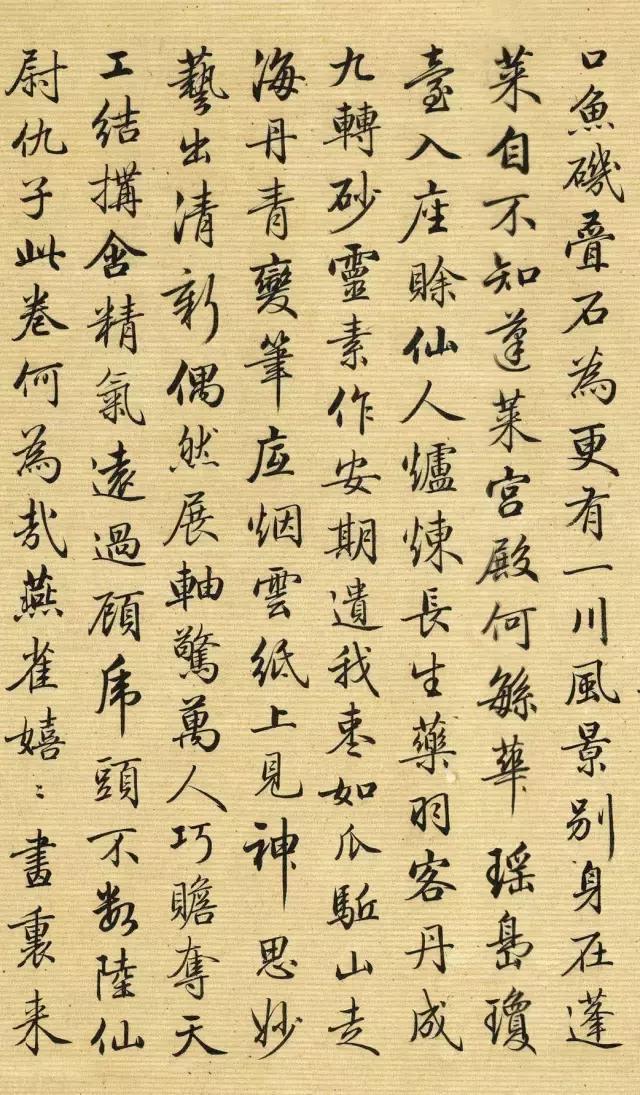 口魚磯疊石為更有一川風景別身在蓬
萊自不知蓬萊宮殿何繇華瑤島瓊
臺入座賒仙人爐煉長生藥羽客丹成
九轉砂靈素作安期遺我棗如瓜駈山走
海丹青變筆底烟雲紙上見神思妙
藝出清新偶然展軸驚萬人巧贍奪天
工結構含精氣遠過顧虎頭不數陸仙
尉仇子此卷何為哉燕雀嬉〻畫裏来